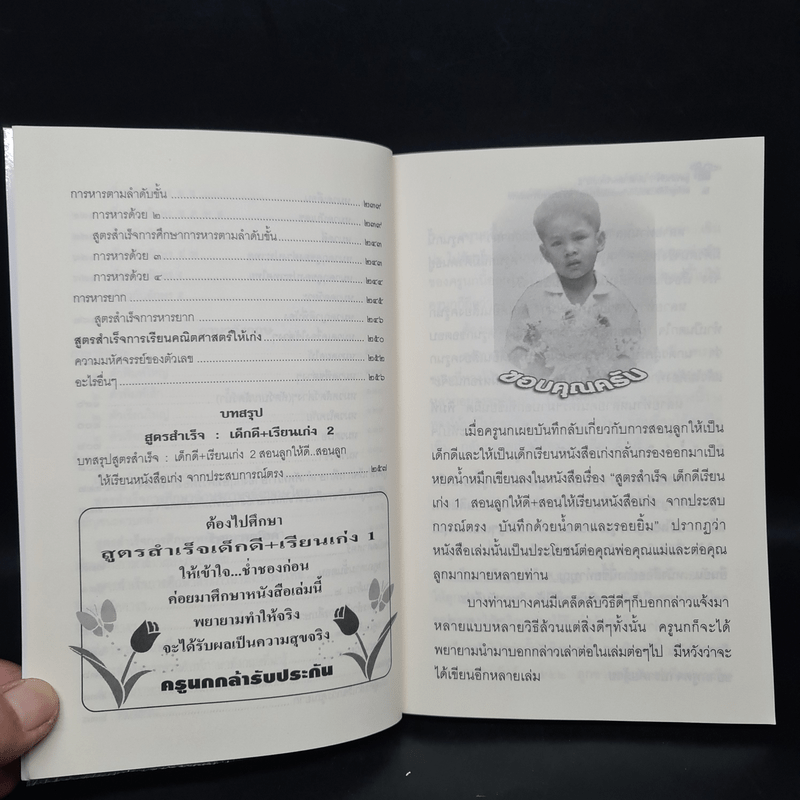 การหารตามลำดับขั้น ๒๓๙
การหารด้วย ๒ ๒๓๙
สูตรสำเร็จการศึกษาการหารตามลำดับขั้น ๒๔๓
การหารด้วย ๓ ๒๔๓
การหารด้วย ๔ ๒๔๔
การหารยาก ๒๔๕
สูตรสำเร็จการหารยาก ๒๔๖
สูตรสำเร็จการเรียนคณิตศาสตร์ให้เก่ง ๒๕๐
ความมหัศจรรย์ของตัวเลข ๒๕๒
อะไรอื่นๆ ๒๕๖
บทสรุป
สูตรสำเร็จ : เด็กดี+เรียนเก่ง 2
บทสรุปสูตรสำเร็จ : เด็กดี+เรียนเก่ง 2 สอนลูกให้ดี..สอนลูก
ให้เรียนหนังสือเก่ง จากประสบการณ์ตรง ๒๕๗
ต้องไปศึกษา
สูตรสำเร็จเด็กดี+เรียนเก่ง 1
ให้เข้าใจ...ช่ำชองก่อน
ค่อยมาศึกษาหนังสือเล่มนี้
พยายามทำให้จริง
จะได้รับผลเป็นความสุขจริง
ครูนกกล้ารับประกัน
ขอบคุณครับ
เมื่อครูนกเผยบันทึกลับเกี่ยวกับการสอนลูกให้เป็น
เด็กดีและให้เป็นเด็กเรียนหนังสือเก่งกลั่นกรองออกมาเป็น
หยดน้ำหมึกเขียนลงในหนังสือเรื่อง "สูตรสำเร็จ เด็กดีเรียน
เก่ง 1 สอนลูกให้ดี+สอนให้เรียนหนังสือเก่ง จากประสบ
การณ์ตรง บันทึกด้วยน้ำตาและรอยยิ้ม" ปรากฏว่า
หนังสือเล่มนั้นเป็นประโยชน์ต่อคุณพ่อคุณแม่และต่อคุณ
ลูกมากมายหลายท่าน
บางท่านบางคนมีเคล็ดลับวิธีดีๆก็บอกกล่าวแจ้งมา
หลายแบบหลายวิธีล้วนแต่สิ่งดีๆทั้งนั้น ครูนกก็จะได้
พยายามนำมาบอกกล่าวเล่าต่อในเล่มต่อๆไป มีหวังว่าจะ
ได้เขียนอีกหลายเล่ม